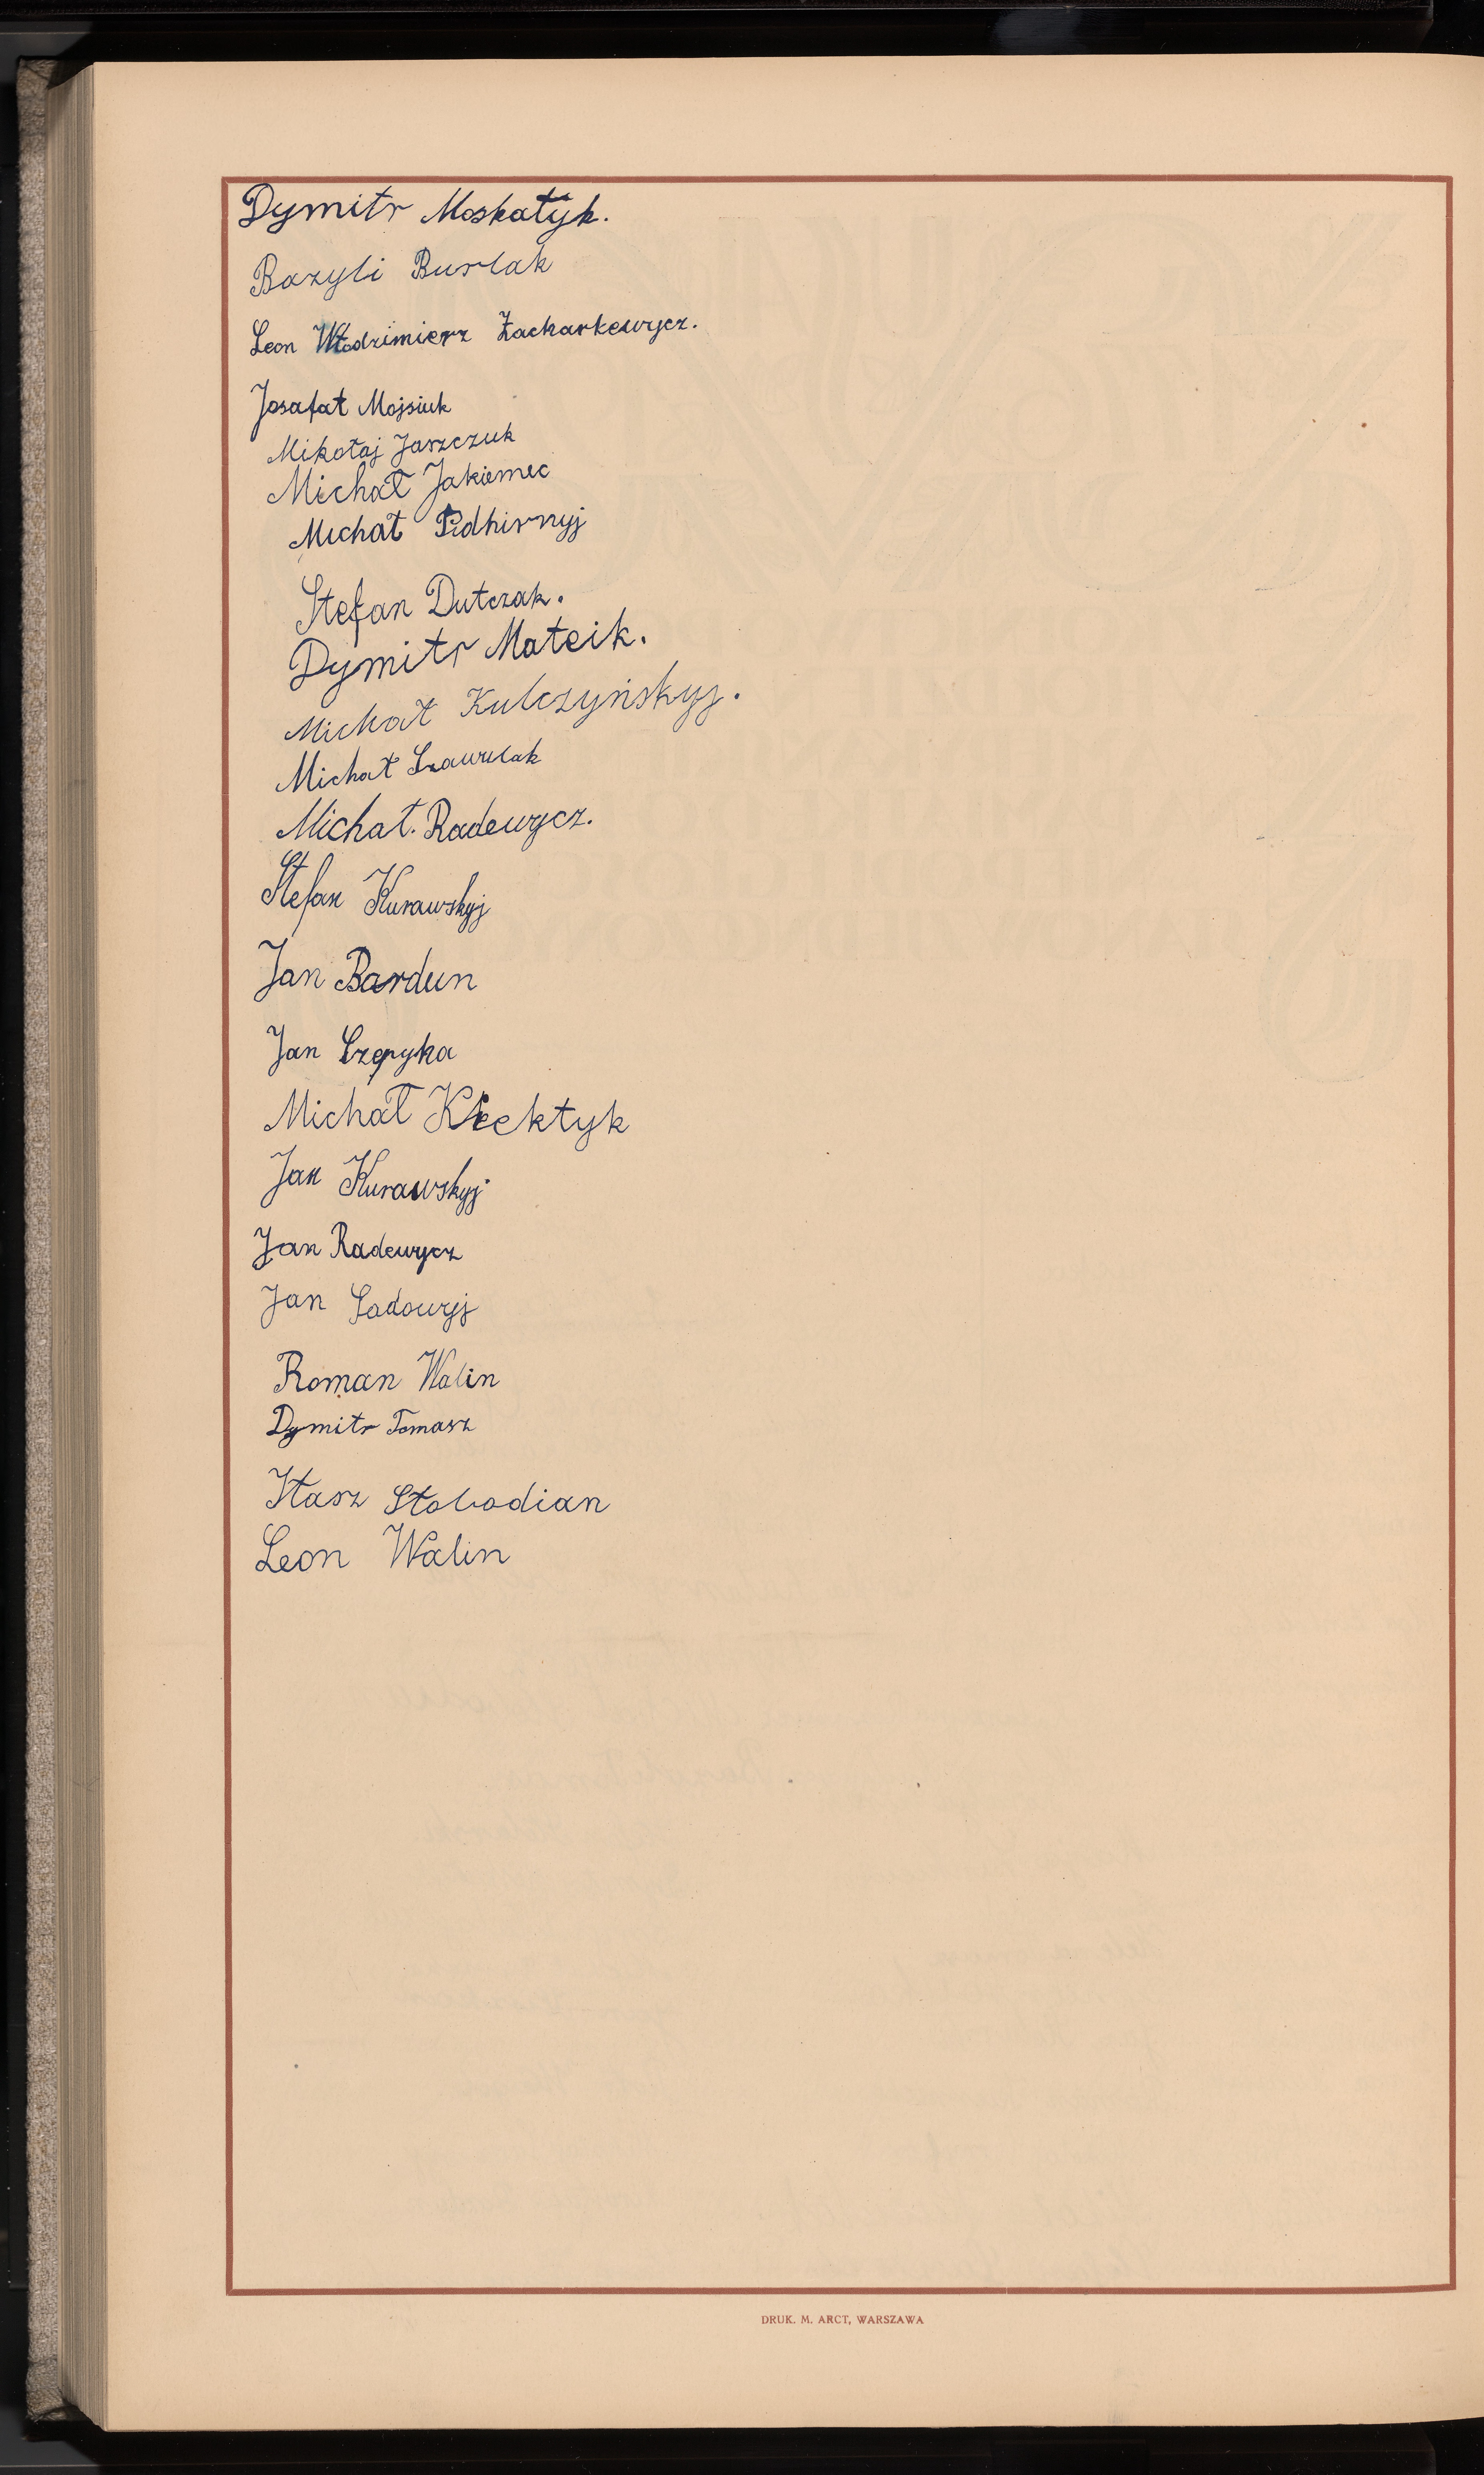 Dymitr Moskałyk.
Bazyli Burlak
Leon Włodzimierz Zacharkewycz.
Josafat Mojsiuk
Mikołaj Jaszczuk
Michał Jakiemec
Michał Pidhirnyj
Stefan Dutczak.
Dymitr Mateik.
Michał Kulczyńskyj.
Michał Szawulak
Michał. Radewycz.
Stefan Kurawskyj
Jan Bardun
Jan Szepyka
Michał Klektyk
Jan Kurawskyj
Jan Radewycz
Jan Sadowyj
Roman Walin
Dymitr Tomasz
Iłasz Słobodian
Leon Walin
DRUK. M. ARCT, WARSZAWA